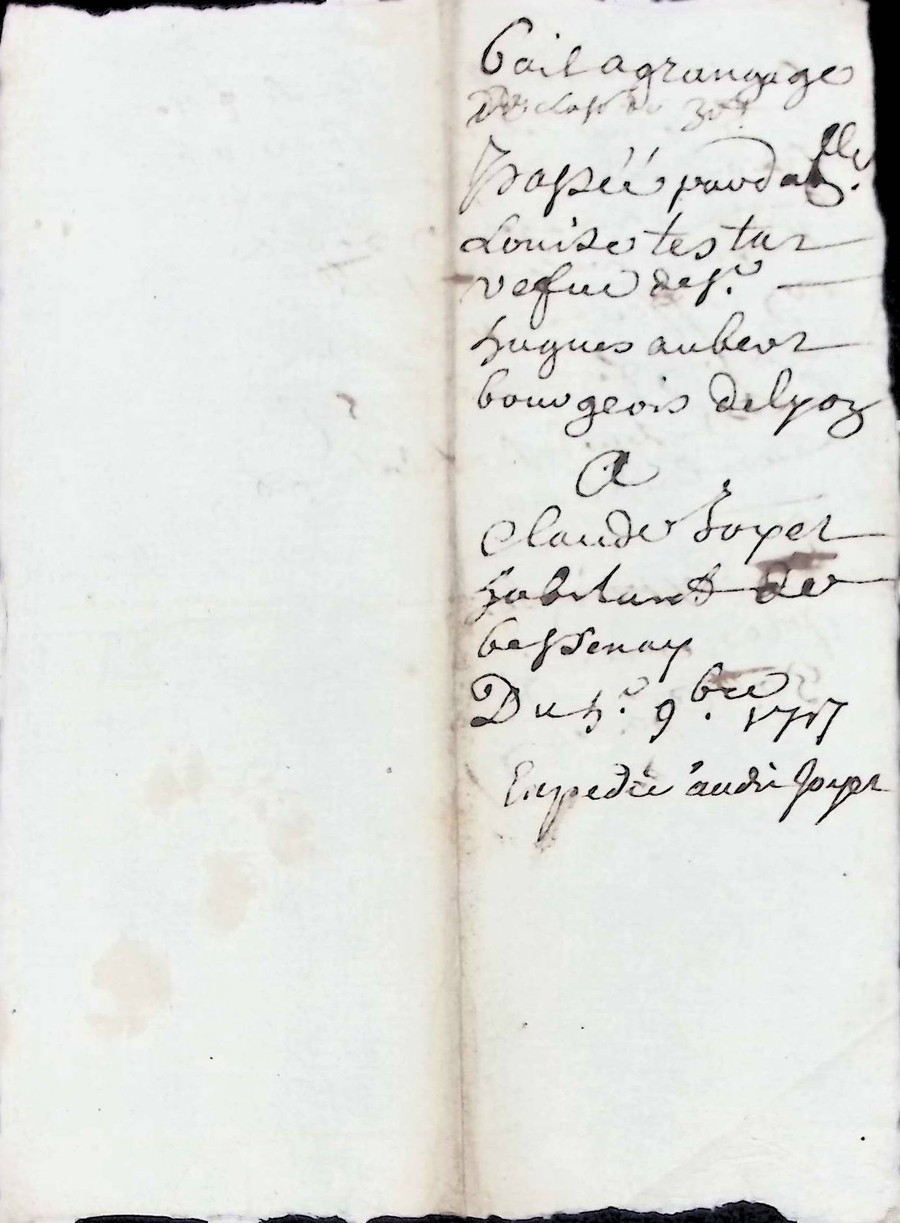 Bail a grangage
passéé par da.lle
Louise testar
vefue de s.r
hugues aubert
bourgeois de lyon
A
Claude Joyet
habitant de
bessenay
Du 9.bre 1717
Expediée audit Joyet